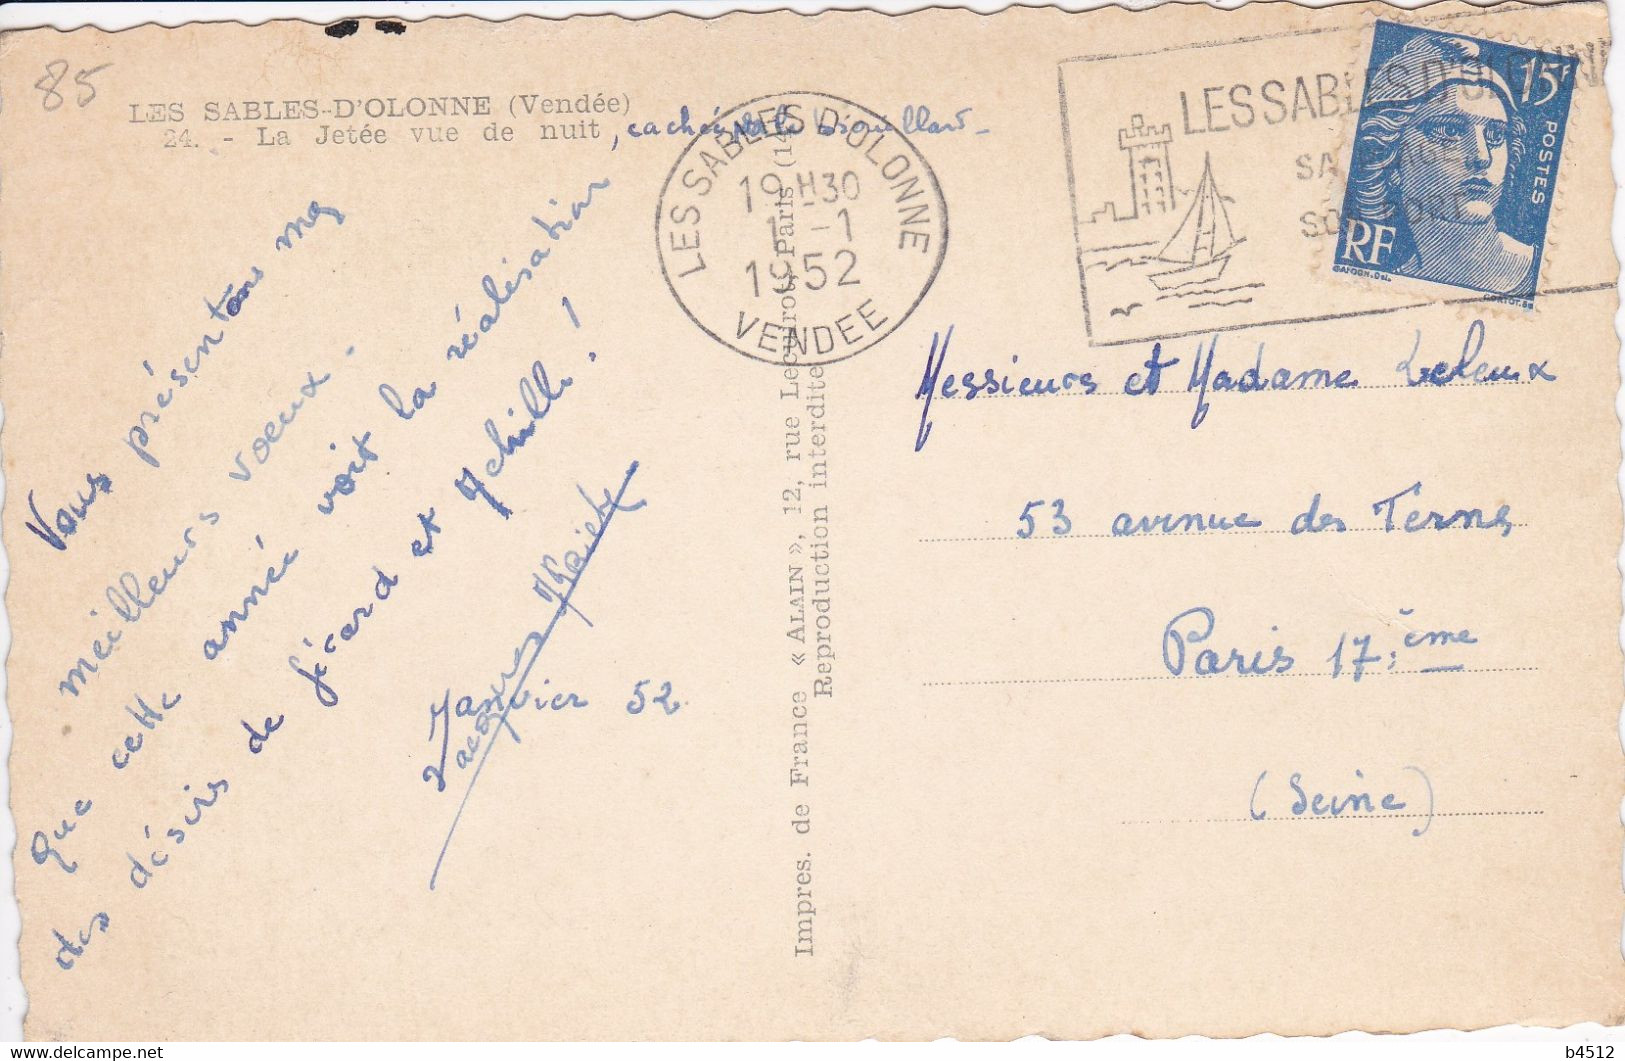 85
LES SABLES-D'OLONNE (Vendée)
24. - La Jetée vue de nuit, cachée par le brouillard -
Vous présentons mes
meilleurs voeux.
Que cette année voit la réalisation
des désirs de Gérard et Achille !
Janvier 52.
Jacques
Impres. de France « ALAIN », 12, rue Lecuirot, Paris (14
Reproduction interdite
LES SABLES D'OLONNE
19 H30
1 - 1
1952
VENDEE
LES SABLES D'OLONNE
SA PLAGE
SON PORT
15F
POSTES
RF
GANDON. Del.
CORTOT. SC
Messieurs et Madame Leleux
53 avenue des Ternes
Paris 17.ème
(Seine)
b4512